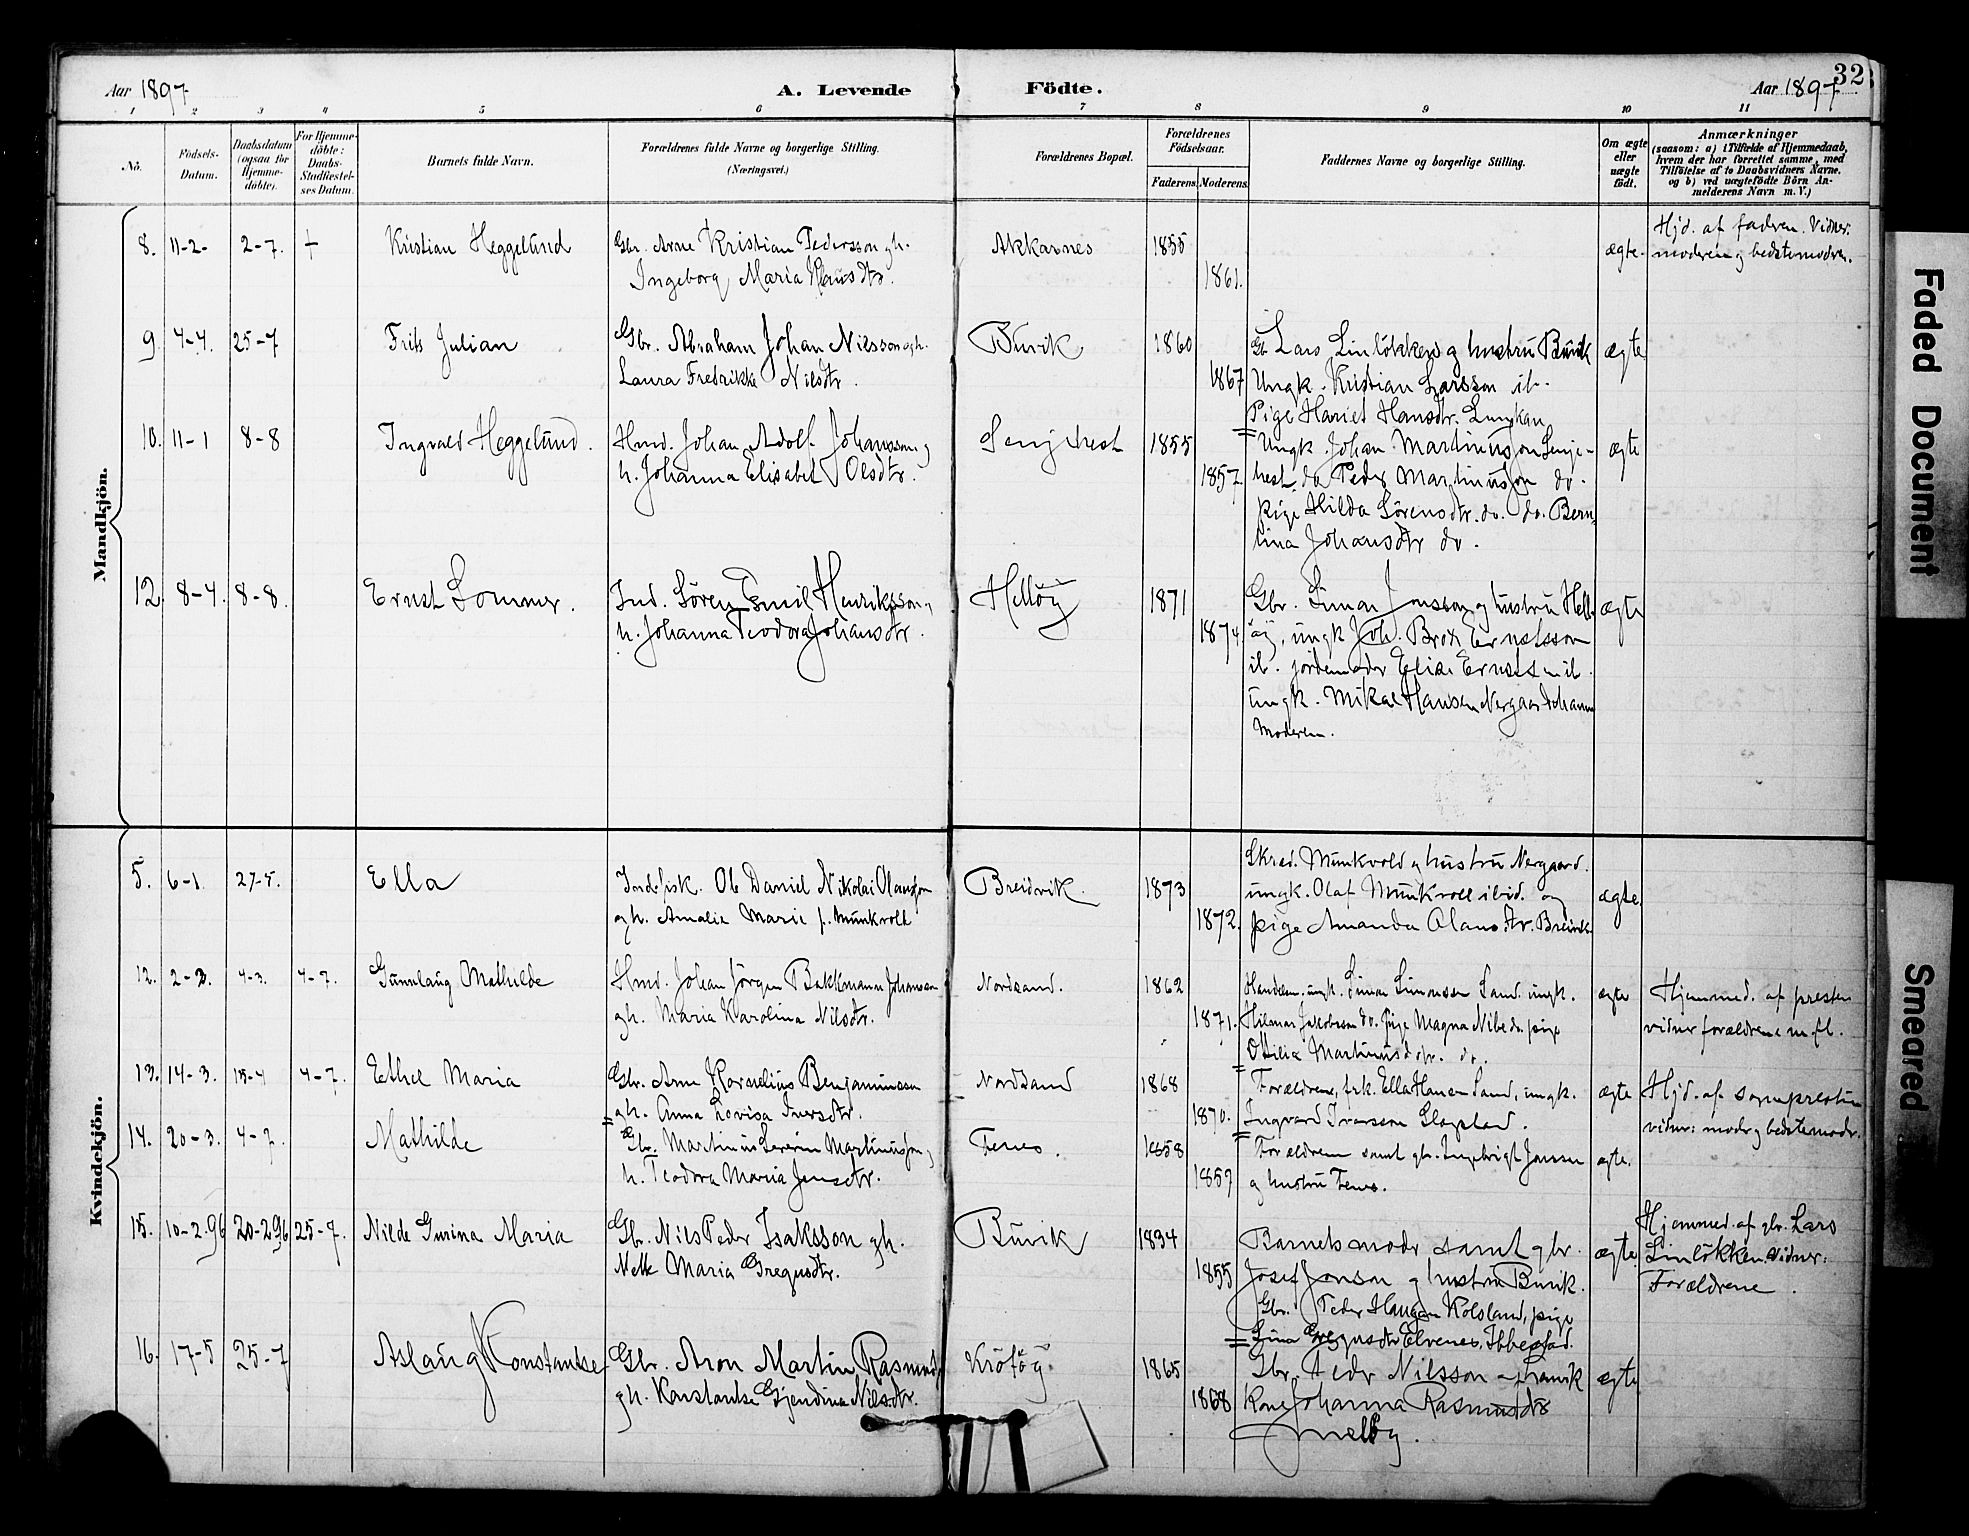 32
Aar 1897
A. Levende Födte.
Aar 1897
1 2 3 4 5 6 7 8 9 10 11
No.
Födsels-Datum.
Daabsdatum (ogsaa for Hjemmedöbte).
For Hjemmedöbte: Daabs-Stadfæstelses Datum.
Barnets fulde Navn.
Forældrenes fulde Navne og borgerlige Stilling. (Næringsvei.)
Forældrenes Bopæl.
Forældrenes Födselsaar.
Faderens Moderens
Faddernes Navne og borgerlige Stilling.
Om ægte eller uægte födt.
Anmærkninger
(saasom: a) i Tilfælde af Hjemmedaab, hvem der har forrettet samme, med Tilföielse af to Daabsvidners Navne, og b) ved uægtefödte Börn Anmelderens Navn m. V.)
Mandkjön.
8. 11-2- 2-7. + Kristian Heggelund
Gbr. Arne Kristian Pedersson gh.
Ingeborg Maria Hansdtr.
Akkarnes 1855
1861.
ægte.
Hjd. af faderen. Vidner:
moderen og bedstemoderen.
9 4-4. 25-7 Frits Julian
Gbr. Abraham Johan Nilsson ogh.
Laura Fredrikke Nilsdtr.
Buvik 1860
1867
Gb Lars Linlökken og hustru Buvik
Ungk. Kristian Larsson ib.
Pige Hariet Hansdtr.
ægte
10. 11-1 8-8 Ingvald Heggelund.
Hmd. Johan Adolf Johansson og
h. Johanna Elisabet Olsdtr.
Senjehest 1855
1857.
Ungk. Johan Martinusson Senje-
hest, do Peder Martinusson do.
pige Hilda Sörensdtr. do. do. Bern-
tina Johansdtr do.
ægte
12. 8-4. 8-8. Ernst Sommer.
Ind. Sören Emil Henriksson og
h. Johanna Teodora Johansdtr.
Hellöy 1871
1874.
Gbr. Simon Jonsson og hustru Hell-
öy, ungk Joh. Brox Ernstsson
ib. jordemoder Elise Ernst ib.
ungk. Mikal Hansen Nergaard
Moderen.
ægte
Kvindekjön.
5. 6-1. 27-5. Ella
Inds. fisk. Ole Daniel Nikolai Olausson
gh. Amalie Marie f. Munkvold
Breidvik. 1873
1872.
Skred. Munkvold og hustru Nergaard.
ungk. Olaf Munkvold ibid. og
pige Amanda Olausdtr. Breivik
ægte.
12. 2-3. 4-3. 4-7. Gunnlaug Mathilde
Hmd. Johan Jörgen Bakkmann Johansen
gh. Maria Karolina Nilsdtr.
Nordsand. 1862
1871.
ungk. Simon Simonsen Sand. ungk.
Hilmar Jakobsson do. pige Magna Nibe do. pige
Otilie Martinusdtr. do.
ægte
Hjemmed. af presten
vidner forældrene m. fl.
13. 14-3. 15-4 4-7. Ethel Maria
Gbr. Arne Kornelius Benjaminsen
gh. Anna Lovisa Iversdtr.
Nordsand 1868
1870.
Forældrene, frk. Ella Hansen Sand, ungk.
Ingvard Ivarsson Slagstad.
ægte
Hjd. af sognepresten
vidner: moder og bedstemoder.
14. 20-3. 4-7. Mathilde
Gbr. Martinus Severin Martinusson og
h. Teodora Maria Jensdtr.
Fenes. 1858
1859
Forældrene samt gbr. Ingebrigt Jonsson
og hustru Fenes.
ægte.
15. 10-2.96 20-2.96 25-7. Nilde Gurina Maria
Gbr. Nils Peder Isaksson gh.
Nelle Maria Gregusdtr.
Buvik 1834
1855
Barnets moder samt gbr.
Josef Jonson og hustru Buvik.
Gbr. Peder Haugen Kolsland, pige
Lina Gregusdtr Elvenes, Ibbestad.
ægte
Hjemmed. af gbr. Lars
Linlökken. Vidner:
Forældrene.
16. 17-5 25-7 Aslaug Konstantse
Gbr. Aron Martin Rasmuss
gh. Konstantse Gjendina Nilsdtr.
Krötöy. 1865
1868
Gbr. Peder Nilsson
Kone Johanna Rasmusdtr
Meløy.
ægte
Faded Document
Smeared